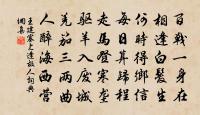 百戰一身在
相逢白髮生
何時得鄉信
每日算歸程
走馬登寒壟
驅羊入廢城
羌笳三兩曲
人醉海西營
王建塞上逢故人詞典
網集